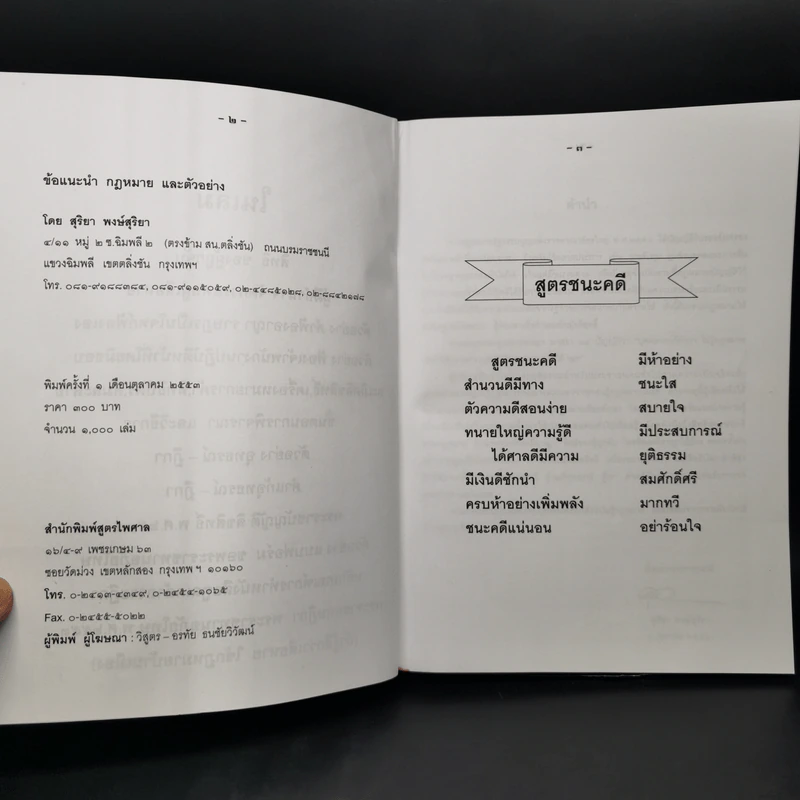 - ๒ -
ข้อแนะนำ กฎหมาย และตัวอย่าง
โดย สุริยา พงษ์สุริยา
๔/๑๑ หมู่ ๒ ซ.ฉิมพลี ๒ (ตรงข้าม สน.ตลิ่งชัน) ถนนบรมราชชนนี
แขวงฉิมพลี เขตตลิ่งชัน กรุงเทพฯ
โทร. ๐๘๑-๙๑๘๘๓๘๔, ๐๘๑-๙๑๑๕๐๕๙, ๐๒-๔๔๘๕๑๒๘, ๐๒-๘๘๔๒๑๙๘
พิมพ์ครั้งที่ ๑ เดือนตุลาคม ๒๕๕๓
ราคา ๓๐๐ บาท
จำนวน ๑,๐๐๐ เล่ม
สำนักพิมพ์สูตรไพศาล
๑๖/๔-๙ เพชรเกษม ๖๓
ซอยวัดม่วง เขตหลักสอง กรุงเทพฯ ๑๐๑๖๐
โทร. ๐-๒๔๑๓-๔๓๔๙, ๐-๒๔๕๔-๑๐๖๕
Fax. ๐-๒๔๕๕-๕๐๒๒
ผู้พิมพ์ ผู้โฆษณา : วิสูตร – อรทัย ธนชัยวิวัฒน์
- ๓ -
สูตรชนะคดี
สูตรชนะคดี มีห้าอย่าง
สำนวนดีมีทาง ชนะใส
ตัวความดีสอนง่าย สบายใจ
ทนายใหญ่ความรู้ดี มีประสบการณ์
ได้ศาลดีมีความ ยุติธรรม
มีเงินดีชักนำ สมศักดิ์ศรี
ครบห้าอย่างเพิ่มพลัง มากทวี
ชนะคดีแน่นอน อย่าร้อนใจ